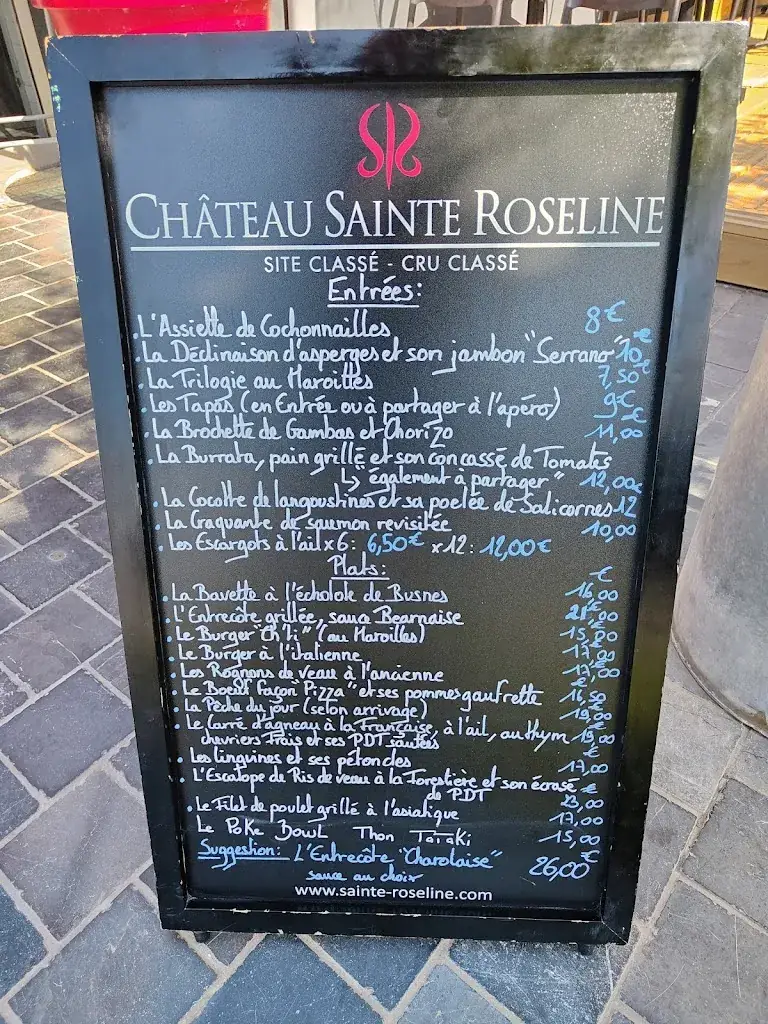 CHÂTEAU SAINTE ROSELINE
SITE CLASSÉ - CRU CLASSÉ
Entrées:
. L'Assiette de Cochonnailles 8€
. La Déclinaison d'asperges et son jambon "Serrano" 10€
. La Trilogie au Maroilles 7,50€
. Les Tapas (en Entrée ou à partager à l'apéro) 9€
. La Brochette de Gambas et Chorizo 11,00€
. La Burrata, pain grillé et son concassé de Tomates
↳ également à partager" 12,00€
. La Cocotte de langoustines et sa poelée de Salicornes 12
. La Craquante de saumon revisitée 10,00
. Les Escargots à l'ail x6: 6,50€ x12: 12,00€
Plats:
. La Bavette à l'échalote de Busnes 16,00€
. L'Entrecôte grillée, sauce Bearnaise 21,00
. Le Burger "Ch'ti" (au Maroilles) 15,00€
. Le Burger à l'italienne
. Les Rognons de veau à l'ancienne
. Le Boeuf façon "Pizza" et ses pommes gaufrette 16,50
. La Pêche du jour (selon arrivage) 19,00
. Le Carré d'agneau à la Française, à l'ail, au thym 19,00
chevriers frais et ses PDT sautées
. Les linguines et ses pétoncles 17,00€
. L'Escalope de Ris de veau à la Forestière et son écrasé
de PDT 23,00€
. Le Filet de poulet grillé à l'asiatique 17,00
Le Poke Bowl Thon Tataki 15,00
Suggestion: L'Entrecôte "Charolaise" 26,00€
sauce au choix
www.sainte-roseline.com